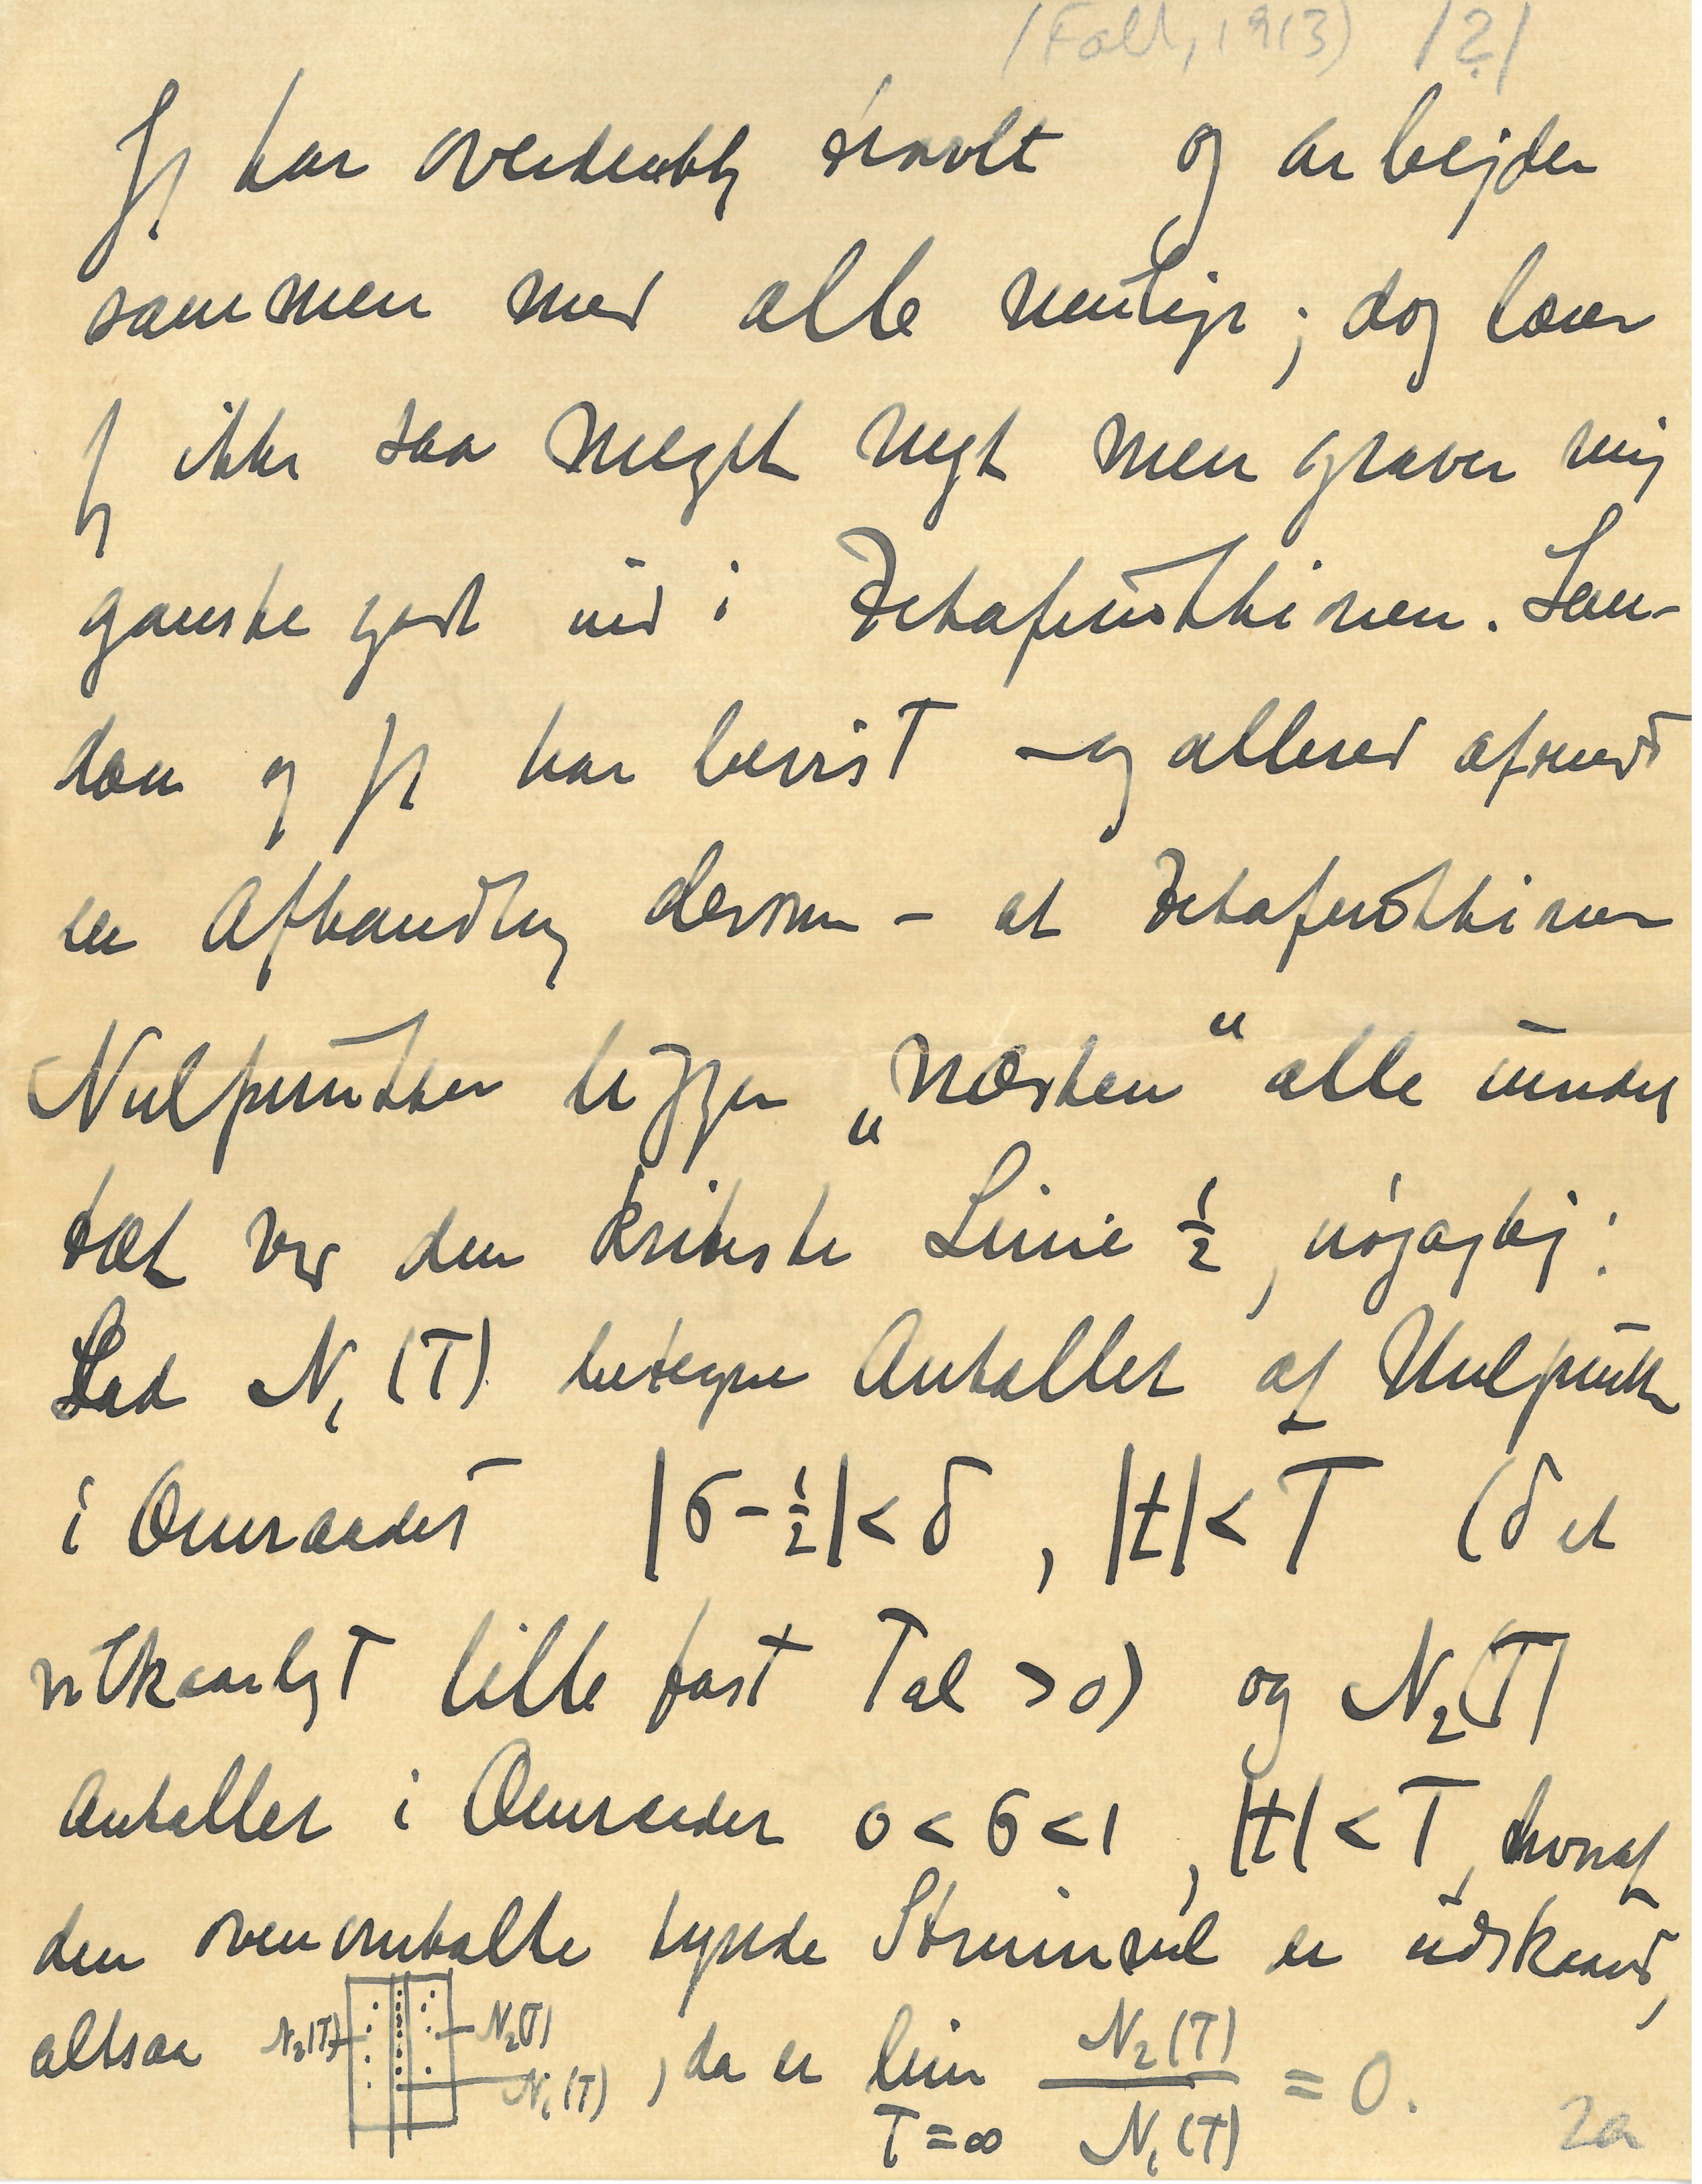 (Fall, 1913) /?/
Jeg har overdentlig travlt og arbejder
sammen med alle mulige; dog lærer
jeg ikke saa meget nyt men graver mig
ganske godt ned i Zetafunktionen. Lan-
dau og jeg har bevist – og allerede afsendt
en Afhandling derom – at Zetafunktionen
Nulpunkter ligger „næsten“ alle uendelig
tæt ved den kritiske Linie ½, nøjagtig:
Lad N₁(T) betegne Antallet af Nulpunkter
i Omraadet |σ-½|<δ, |t|<T (δ et
vilkaarligt lille fast Tal >0) og N₂(T)
Antallet i Omraadet 0<σ<1, |t|<T, hvoraf
den ovenomtalte tynde Strimmel er udskaaret,
altsaa N₂(T) N₂(T) N₁(T), da er lim T=∞ N₂(T)/N₁(T) = 0.
2a